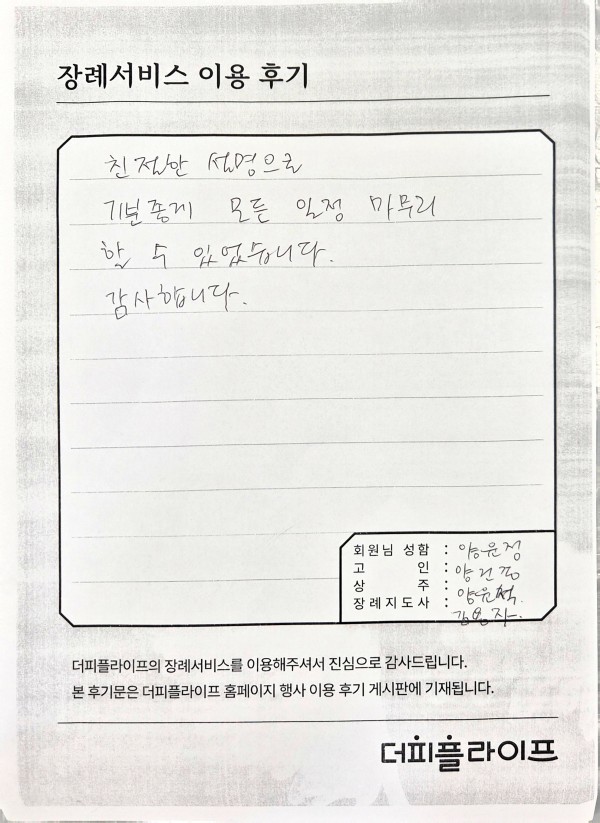 장례서비스 이용 후기
친절한 설명으로
기분좋게 모든 일정 마무리
할 수 있었습니다.
감사합니다.
회원님 성함 : 양윤정
고 인 : 양
상 주 : 양윤석.
장례지도사 : 김용자.
더피플라이프의 장례서비스를 이용해주셔서 진심으로 감사드립니다.
본 후기문은 더피플라이프 홈페이지 행사 이용 후기 게시판에 기재됩니다.
더피플라이프